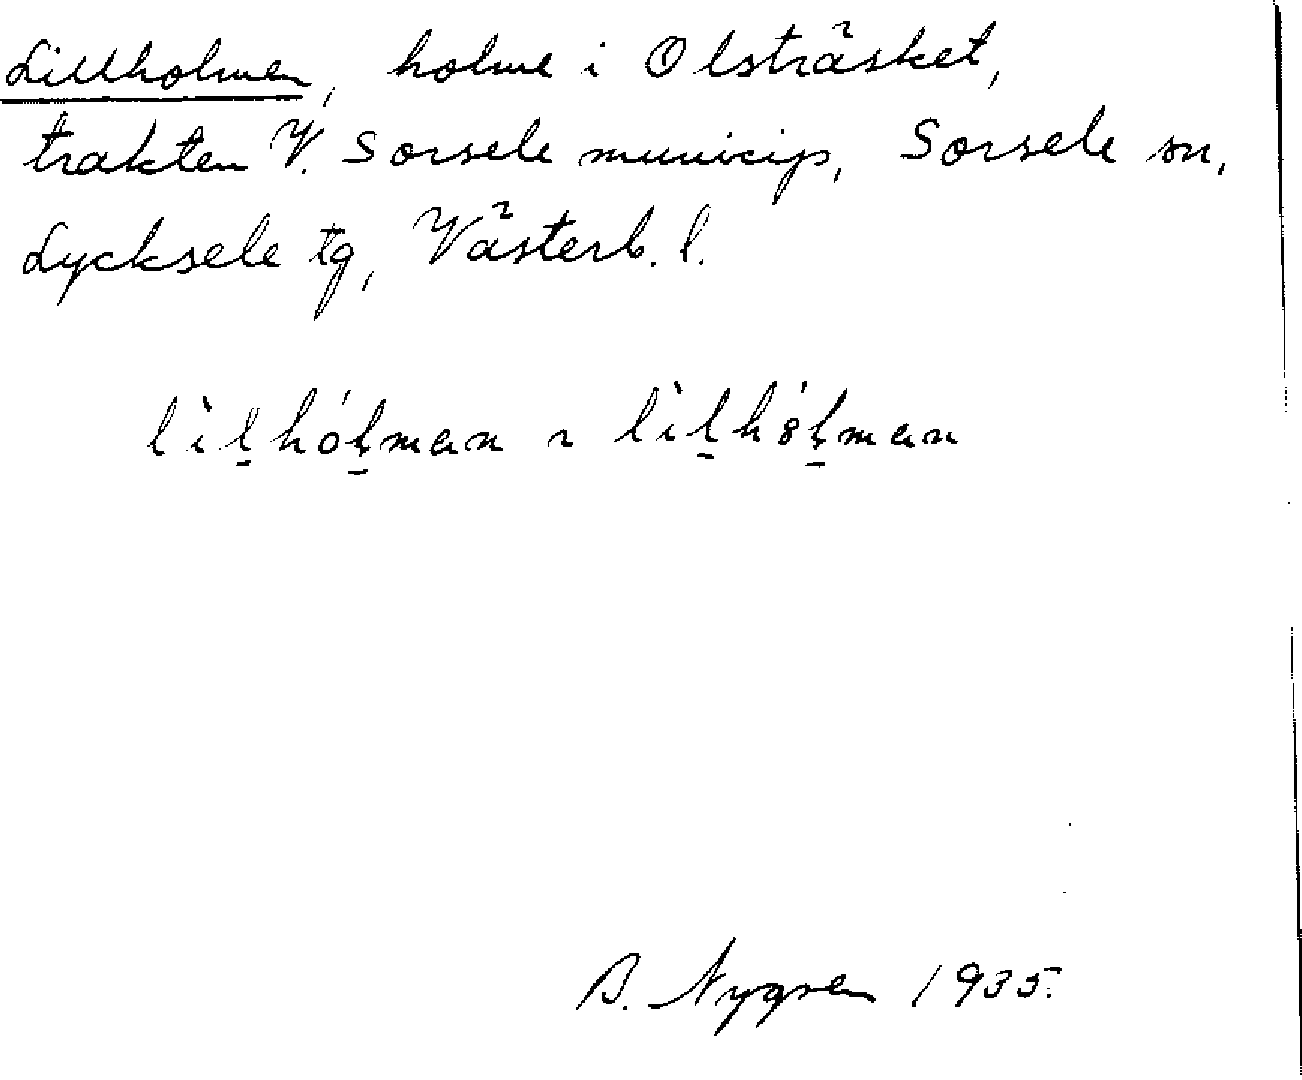 Lillholmen, holme i Olsträsket,
trakten V. Sorsele municip, Sorsele sn,
Lycksele tg, Västerb. l.
lìl̠hól̠man ~ lìl̠hȣ́l̠man
B. Nygren 1935.